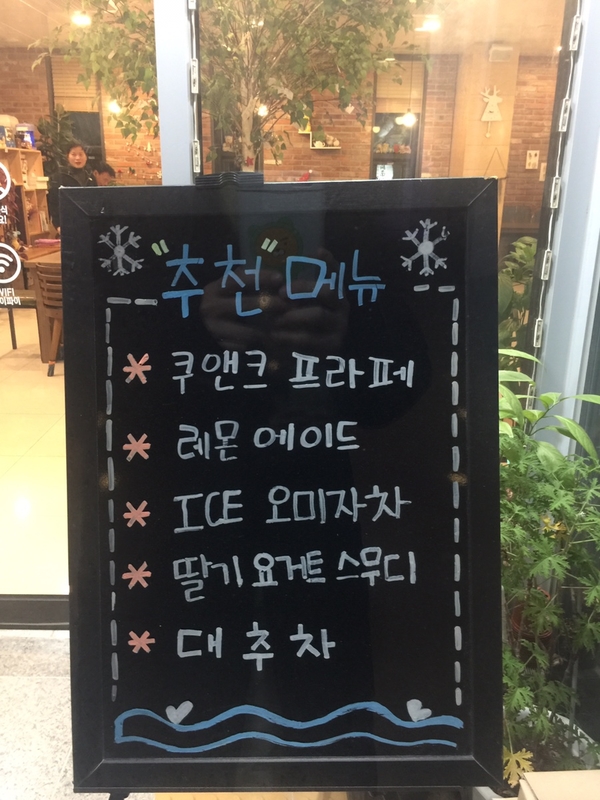 "추천" 메뉴
* 쿠앤크 프라페
* 레몬 에이드
* ICE 오미자차
* 딸기 요거트 스무디
* 대추차
WIFI